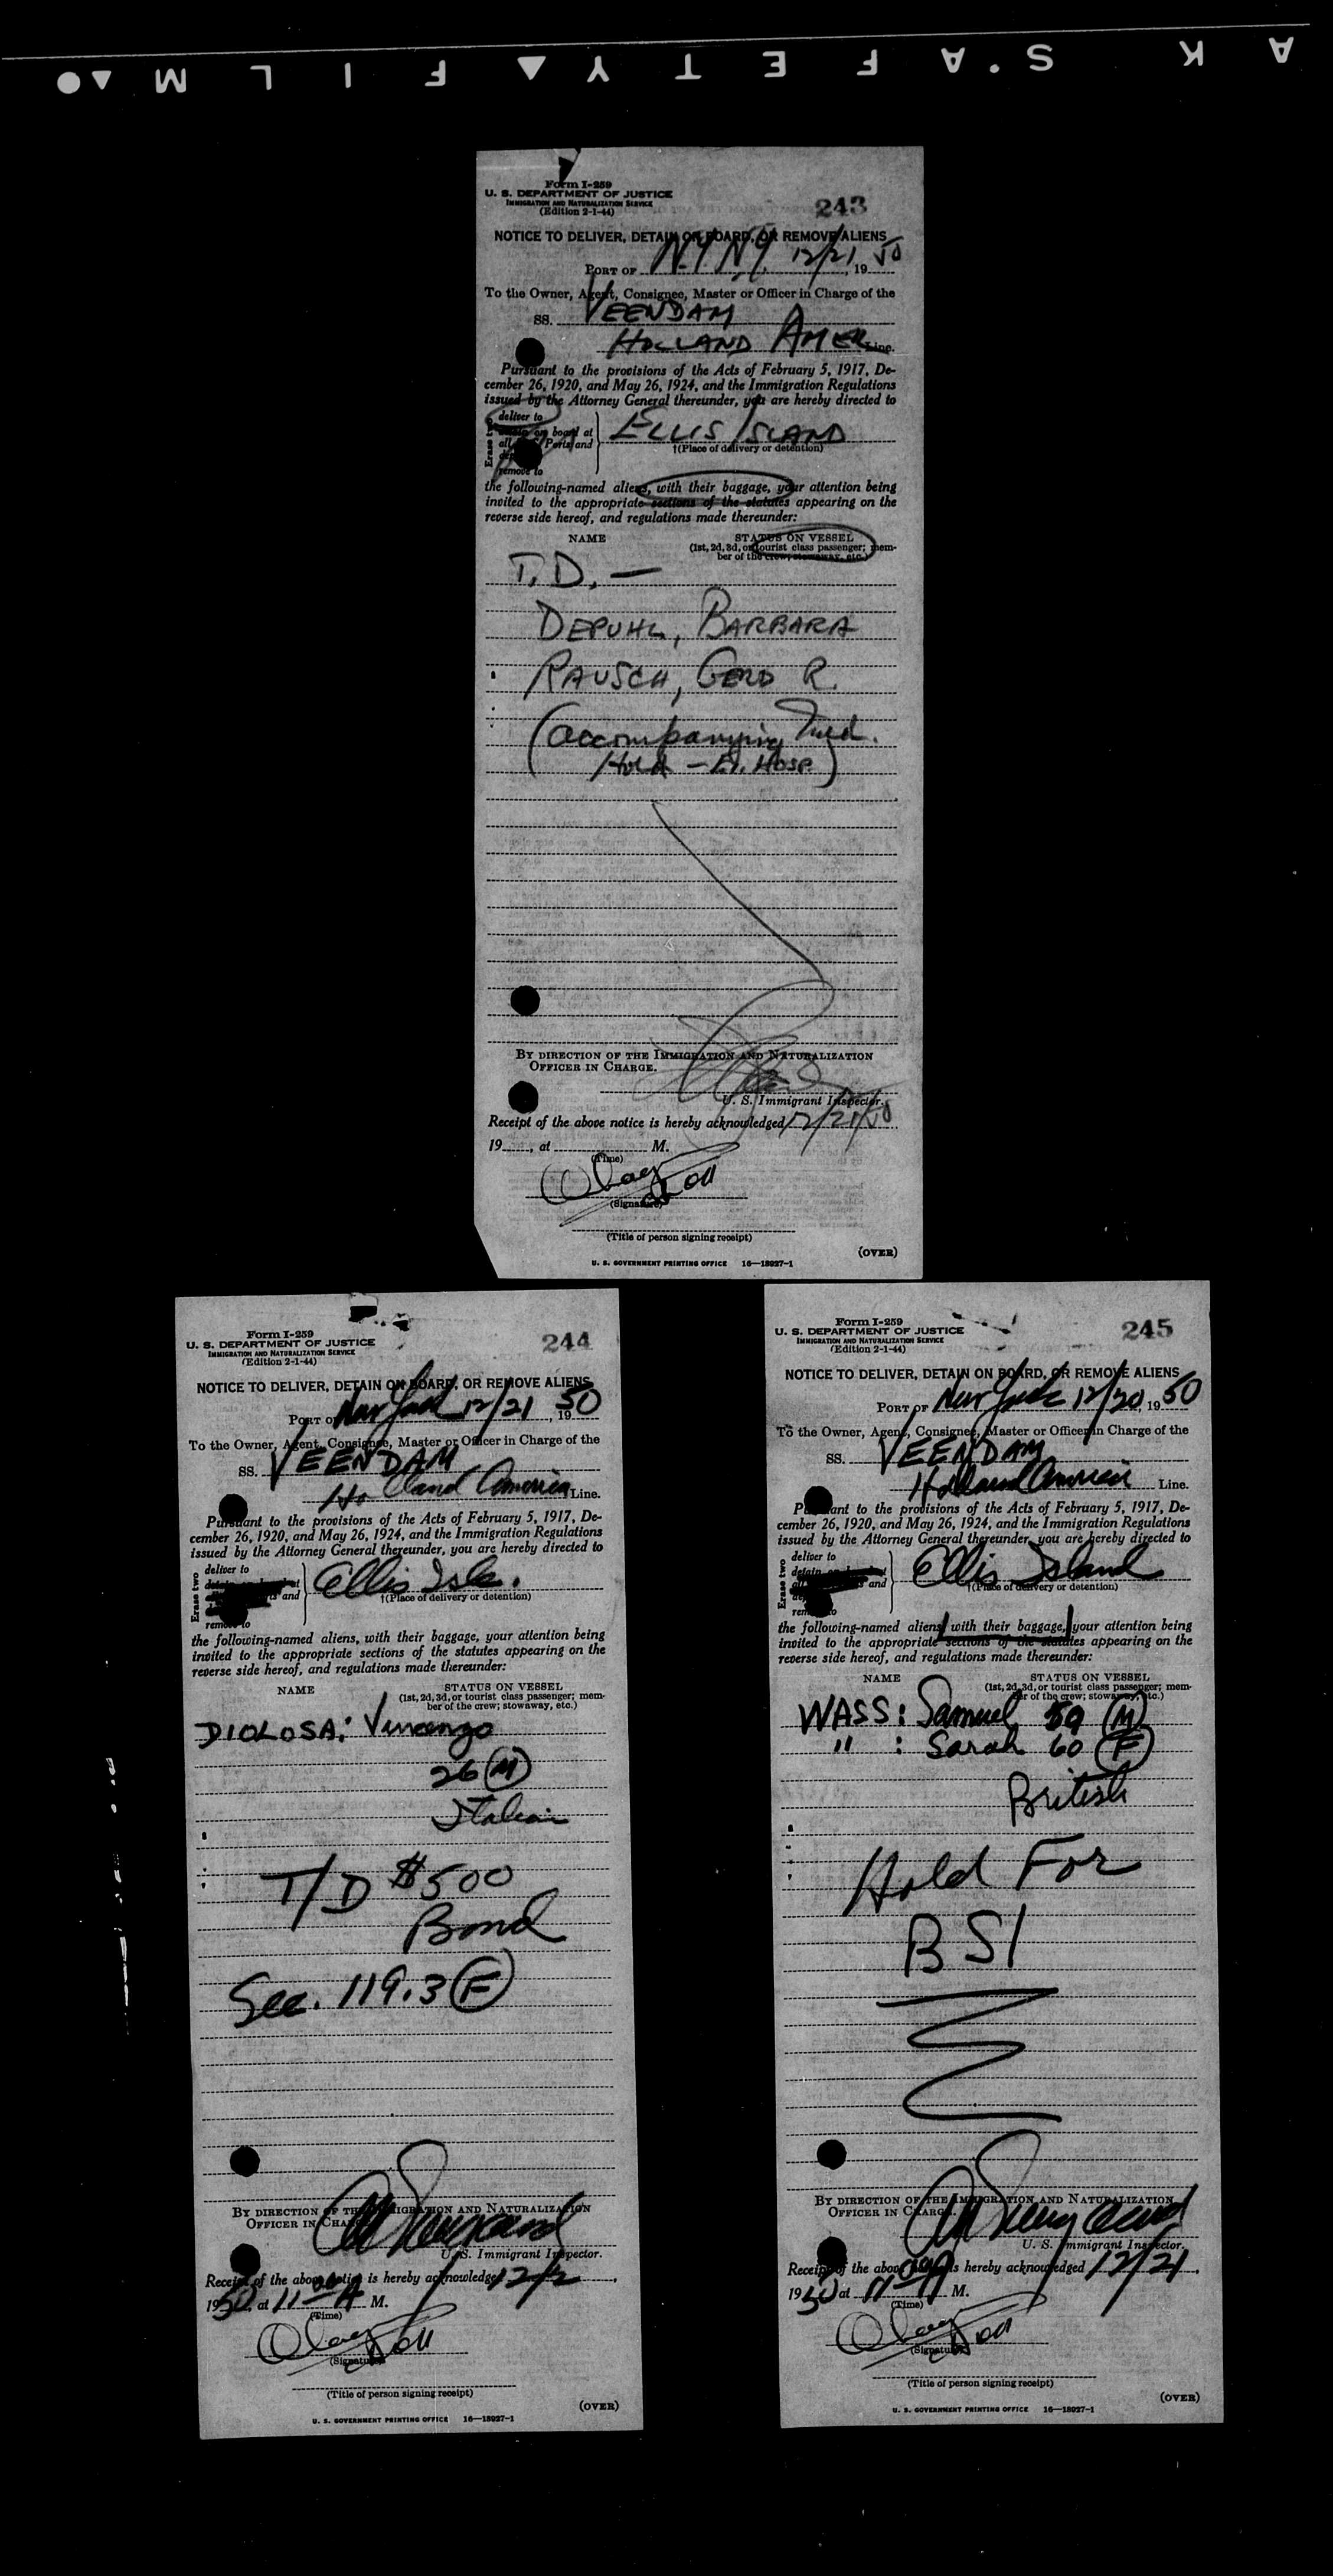 A K S'A F E T Y F I L M
Form I-259
U. S. DEPARTMENT OF JUSTICE
IMMIGRATION AND NATURALIZATION SERVICE
(Edition 2-1-44)
243
NOTICE TO DELIVER, DETAIN ON BOARD, OR REMOVE ALIENS
PORT OF N.Y. N.Y. 12/21, 19 50
To the Owner, Agent, Consignee, Master or Officer in Charge of the
SS. VEENDAM
HOLLAND AMER Line.
Pursuant to the provisions of the Acts of February 5, 1917, De-
cember 26, 1920, and May 26, 1924, and the Immigration Regulations
issued by the Attorney General thereunder, you are hereby directed to
Erase two
deliver to
on board at
all Ports and
remove to
ELLIS ISLAND
†(Place of delivery or detention)
the following-named aliens, with their baggage, your attention being
invited to the appropriate sections of the statutes appearing on the
reverse side hereof, and regulations made thereunder:
NAME STATUS ON VESSEL
(1st, 2d, 3d, or tourist class passenger; mem-
ber of the crew; stowaway, etc.)
T.D. —
DEPUHL, BARBARA
RAUSCH, GERD R.
(accompanying
Hold - E.I. HOSP.)
BY DIRECTION OF THE IMMIGRATION AND NATURALIZATION
OFFICER IN CHARGE.
U. S. Immigrant Inspector.
Receipt of the above notice is hereby acknowledged 12/21/50
19 , at M.
(Time)
(Signature)
(Title of person signing receipt)
(OVER)
U. S. GOVERNMENT PRINTING OFFICE 16—18927-1
Form I-259
U. S. DEPARTMENT OF JUSTICE
IMMIGRATION AND NATURALIZATION SERVICE
(Edition 2-1-44)
244
NOTICE TO DELIVER, DETAIN ON BOARD, OR REMOVE ALIENS
PORT OF New York 12/21, 19 50
To the Owner, Agent, Consignee, Master or Officer in Charge of the
SS. VEENDAM
Holland America Line.
Pursuant to the provisions of the Acts of February 5, 1917, De-
cember 26, 1920, and May 26, 1924, and the Immigration Regulations
issued by the Attorney General thereunder, you are hereby directed to
Erase two
deliver to
and
remove to
Ellis Isle.
†(Place of delivery or detention)
the following-named aliens, with their baggage, your attention being
invited to the appropriate sections of the statutes appearing on the
reverse side hereof, and regulations made thereunder:
NAME STATUS ON VESSEL
(1st, 2d, 3d, or tourist class passenger; mem-
ber of the crew; stowaway, etc.)
DIOLOSA: Vincenzo
26 (M)
Italian
T/D $500
Bond
Sec. 119.3 (F)
BY DIRECTION OF THE IMMIGRATION AND NATURALIZATION
OFFICER IN CHARGE.
U. S. Immigrant Inspector.
Receipt of the above notice is hereby acknowledged 12/2
1950, at 11 A M.
(Time)
(Signature)
(Title of person signing receipt)
(OVER)
U. S. GOVERNMENT PRINTING OFFICE 16—18927-1
Form I-259
U. S. DEPARTMENT OF JUSTICE
IMMIGRATION AND NATURALIZATION SERVICE
(Edition 2-1-44)
245
NOTICE TO DELIVER, DETAIN ON BOARD, OR REMOVE ALIENS
PORT OF New York 12/20, 19 50
To the Owner, Agent, Consignee, Master or Officer in Charge of the
SS. VEENDAM
Holland America Line.
Pursuant to the provisions of the Acts of February 5, 1917, De-
cember 26, 1920, and May 26, 1924, and the Immigration Regulations
issued by the Attorney General thereunder, you are hereby directed to
Erase two
deliver to
detain
and
remove to
Ellis Island
†(Place of delivery or detention)
the following-named aliens, with their baggage, your attention being
invited to the appropriate sections of the statutes appearing on the
reverse side hereof, and regulations made thereunder:
NAME STATUS ON VESSEL
(1st, 2d, 3d, or tourist class passenger; mem-
ber of the crew; stowaway, etc.)
WASS: Samuel 59 (M)
" : Sarah 60 (F)
British
Hold For
BSI
BY DIRECTION OF THE IMMIGRATION AND NATURALIZATION
OFFICER IN CHARGE.
U. S. Immigrant Inspector.
Receipt of the above notice is hereby acknowledged 12/21,
1950 at 11 A M.
(Time)
(Signature)
(Title of person signing receipt)
(OVER)
U. S. GOVERNMENT PRINTING OFFICE 16—18927-1